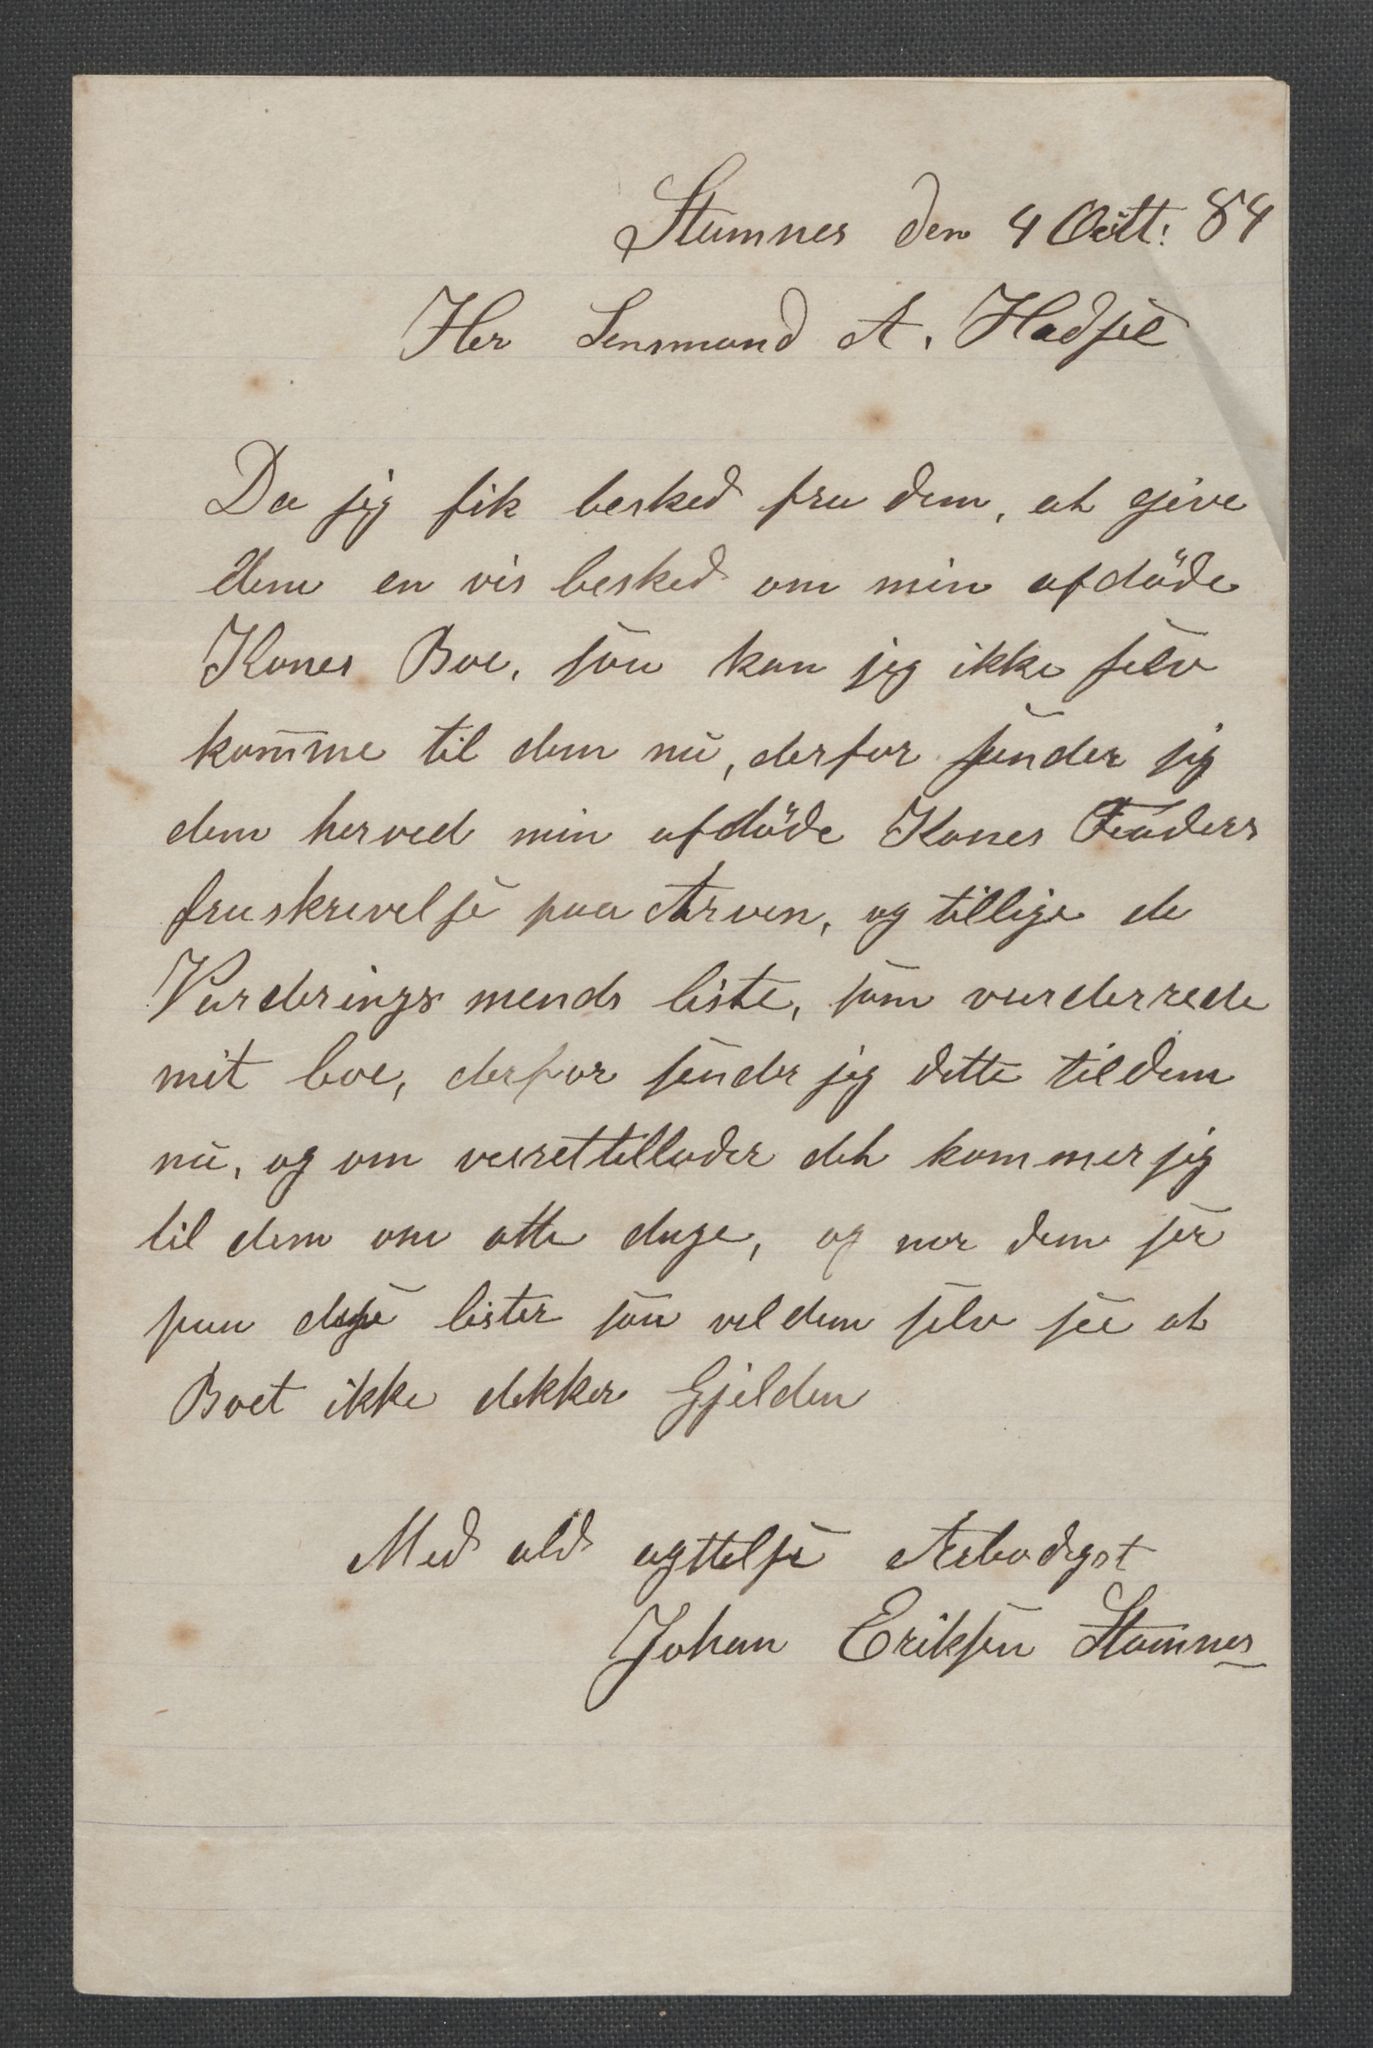 Stamnes den 4 Octt: 84
Her Lensmand A. Hadsel
Da jeg fik besked fra dem, at give
dem en vis besked om min afdöde
Kones Boe, saa kan jeg ikke selv
komme til dem nu, derfor sender jeg
dem herved min afdöde Kones Faders
fraskrevelse paa Arven, og tillige de
Vurderings mends liste, som vurderrede
mit boe, derfor sender jeg dette til dem
nu, og om veiret tillader det kommer jeg
til dem om otte dage, og nor dem ser
paa disse lister saa vil dem selv see at
Boet ikke dekker Gjelden
Med ald agttelse Ærbødigst
Johan Eriksen Stamnes